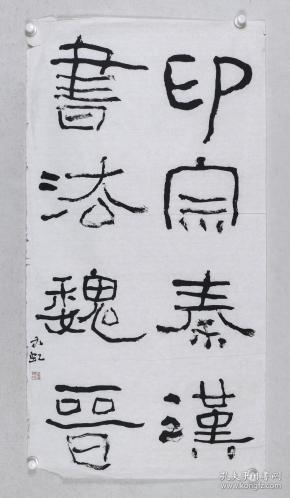 印宗秦漢
書法魏晉
孔夫子旧书网
www.kongfz.com